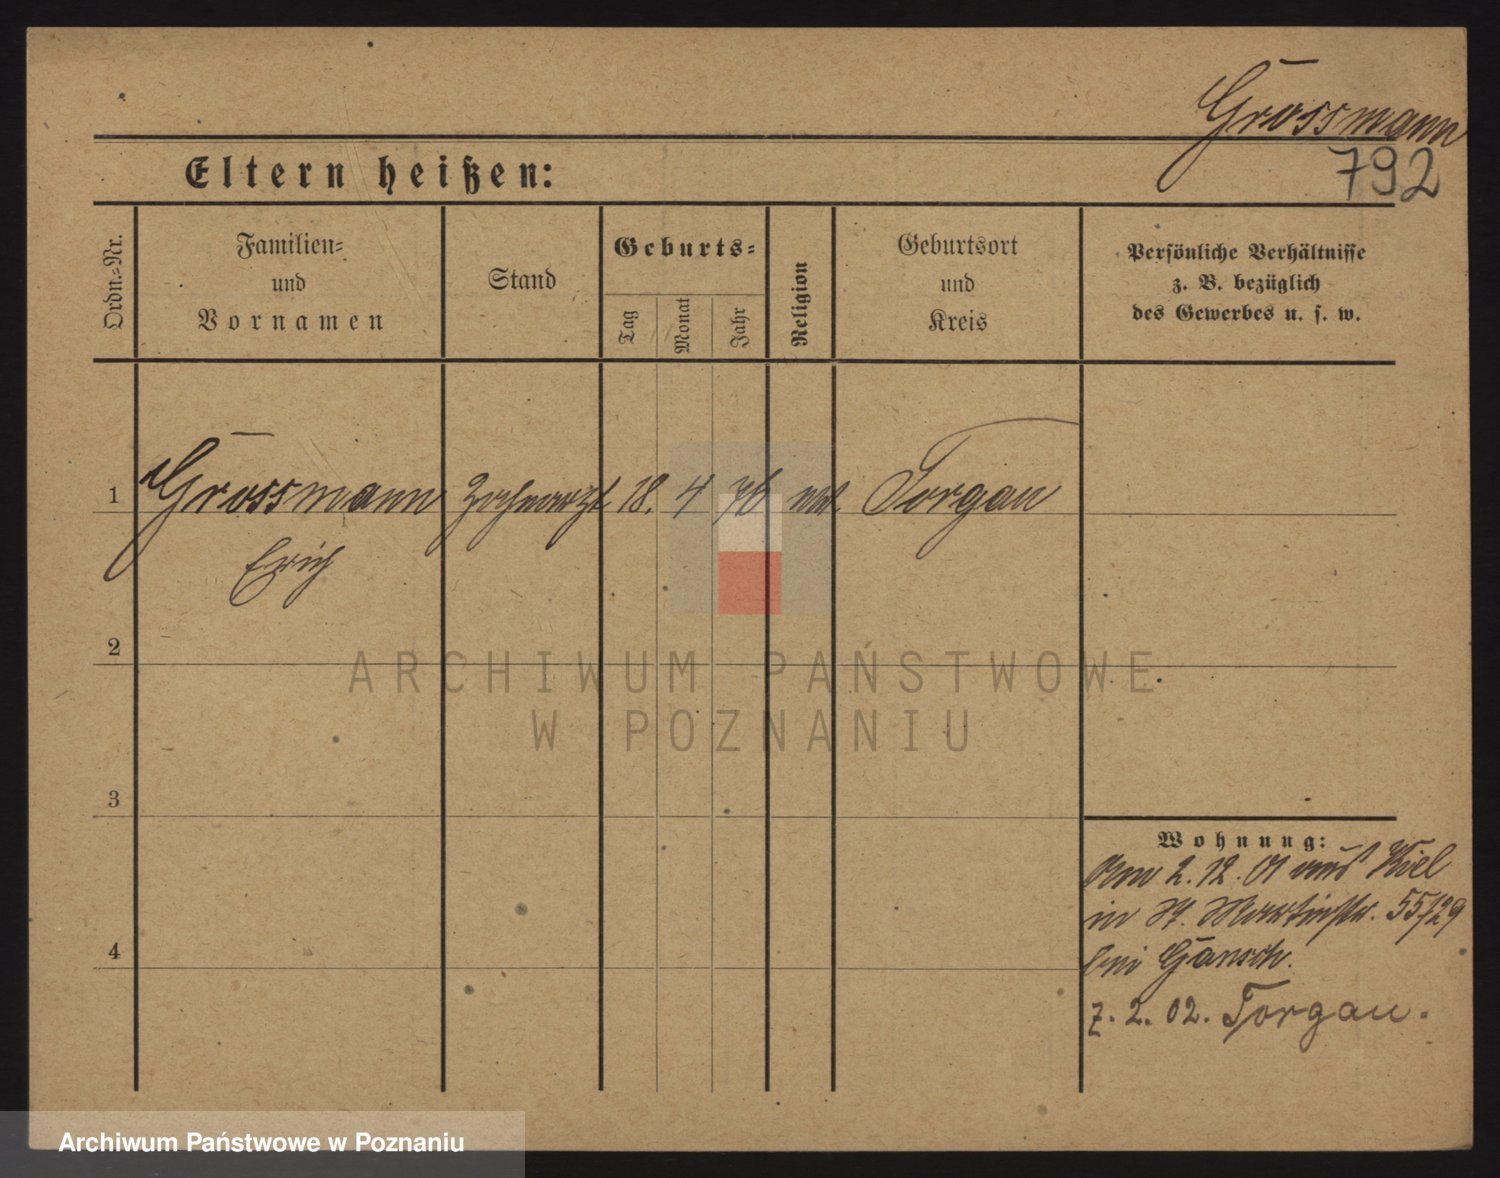 Grossmann
792
Eltern heißen:
Ordn.-Nr.
Familien-
und
Vornamen
Stand
Geburts-
Tag
Monat
Jahr
Religion
Geburtsort
und
Kreis
Persönliche Verhältnisse
z. B. bezüglich
des Gewerbes u. s. w.
1 Grossmann Zahnarzt 18. 4 76 Torgau
Erich
2
ARCHIWUM PAŃSTWOWE
W POZNANIU
3
Wohnung:
Am 2.12.01 aus Kiel
in St. Martinstr. 55/29
4
bei Gansch.
7. 2. 02. Torgau.
Archiwum Państwowe w Poznaniu